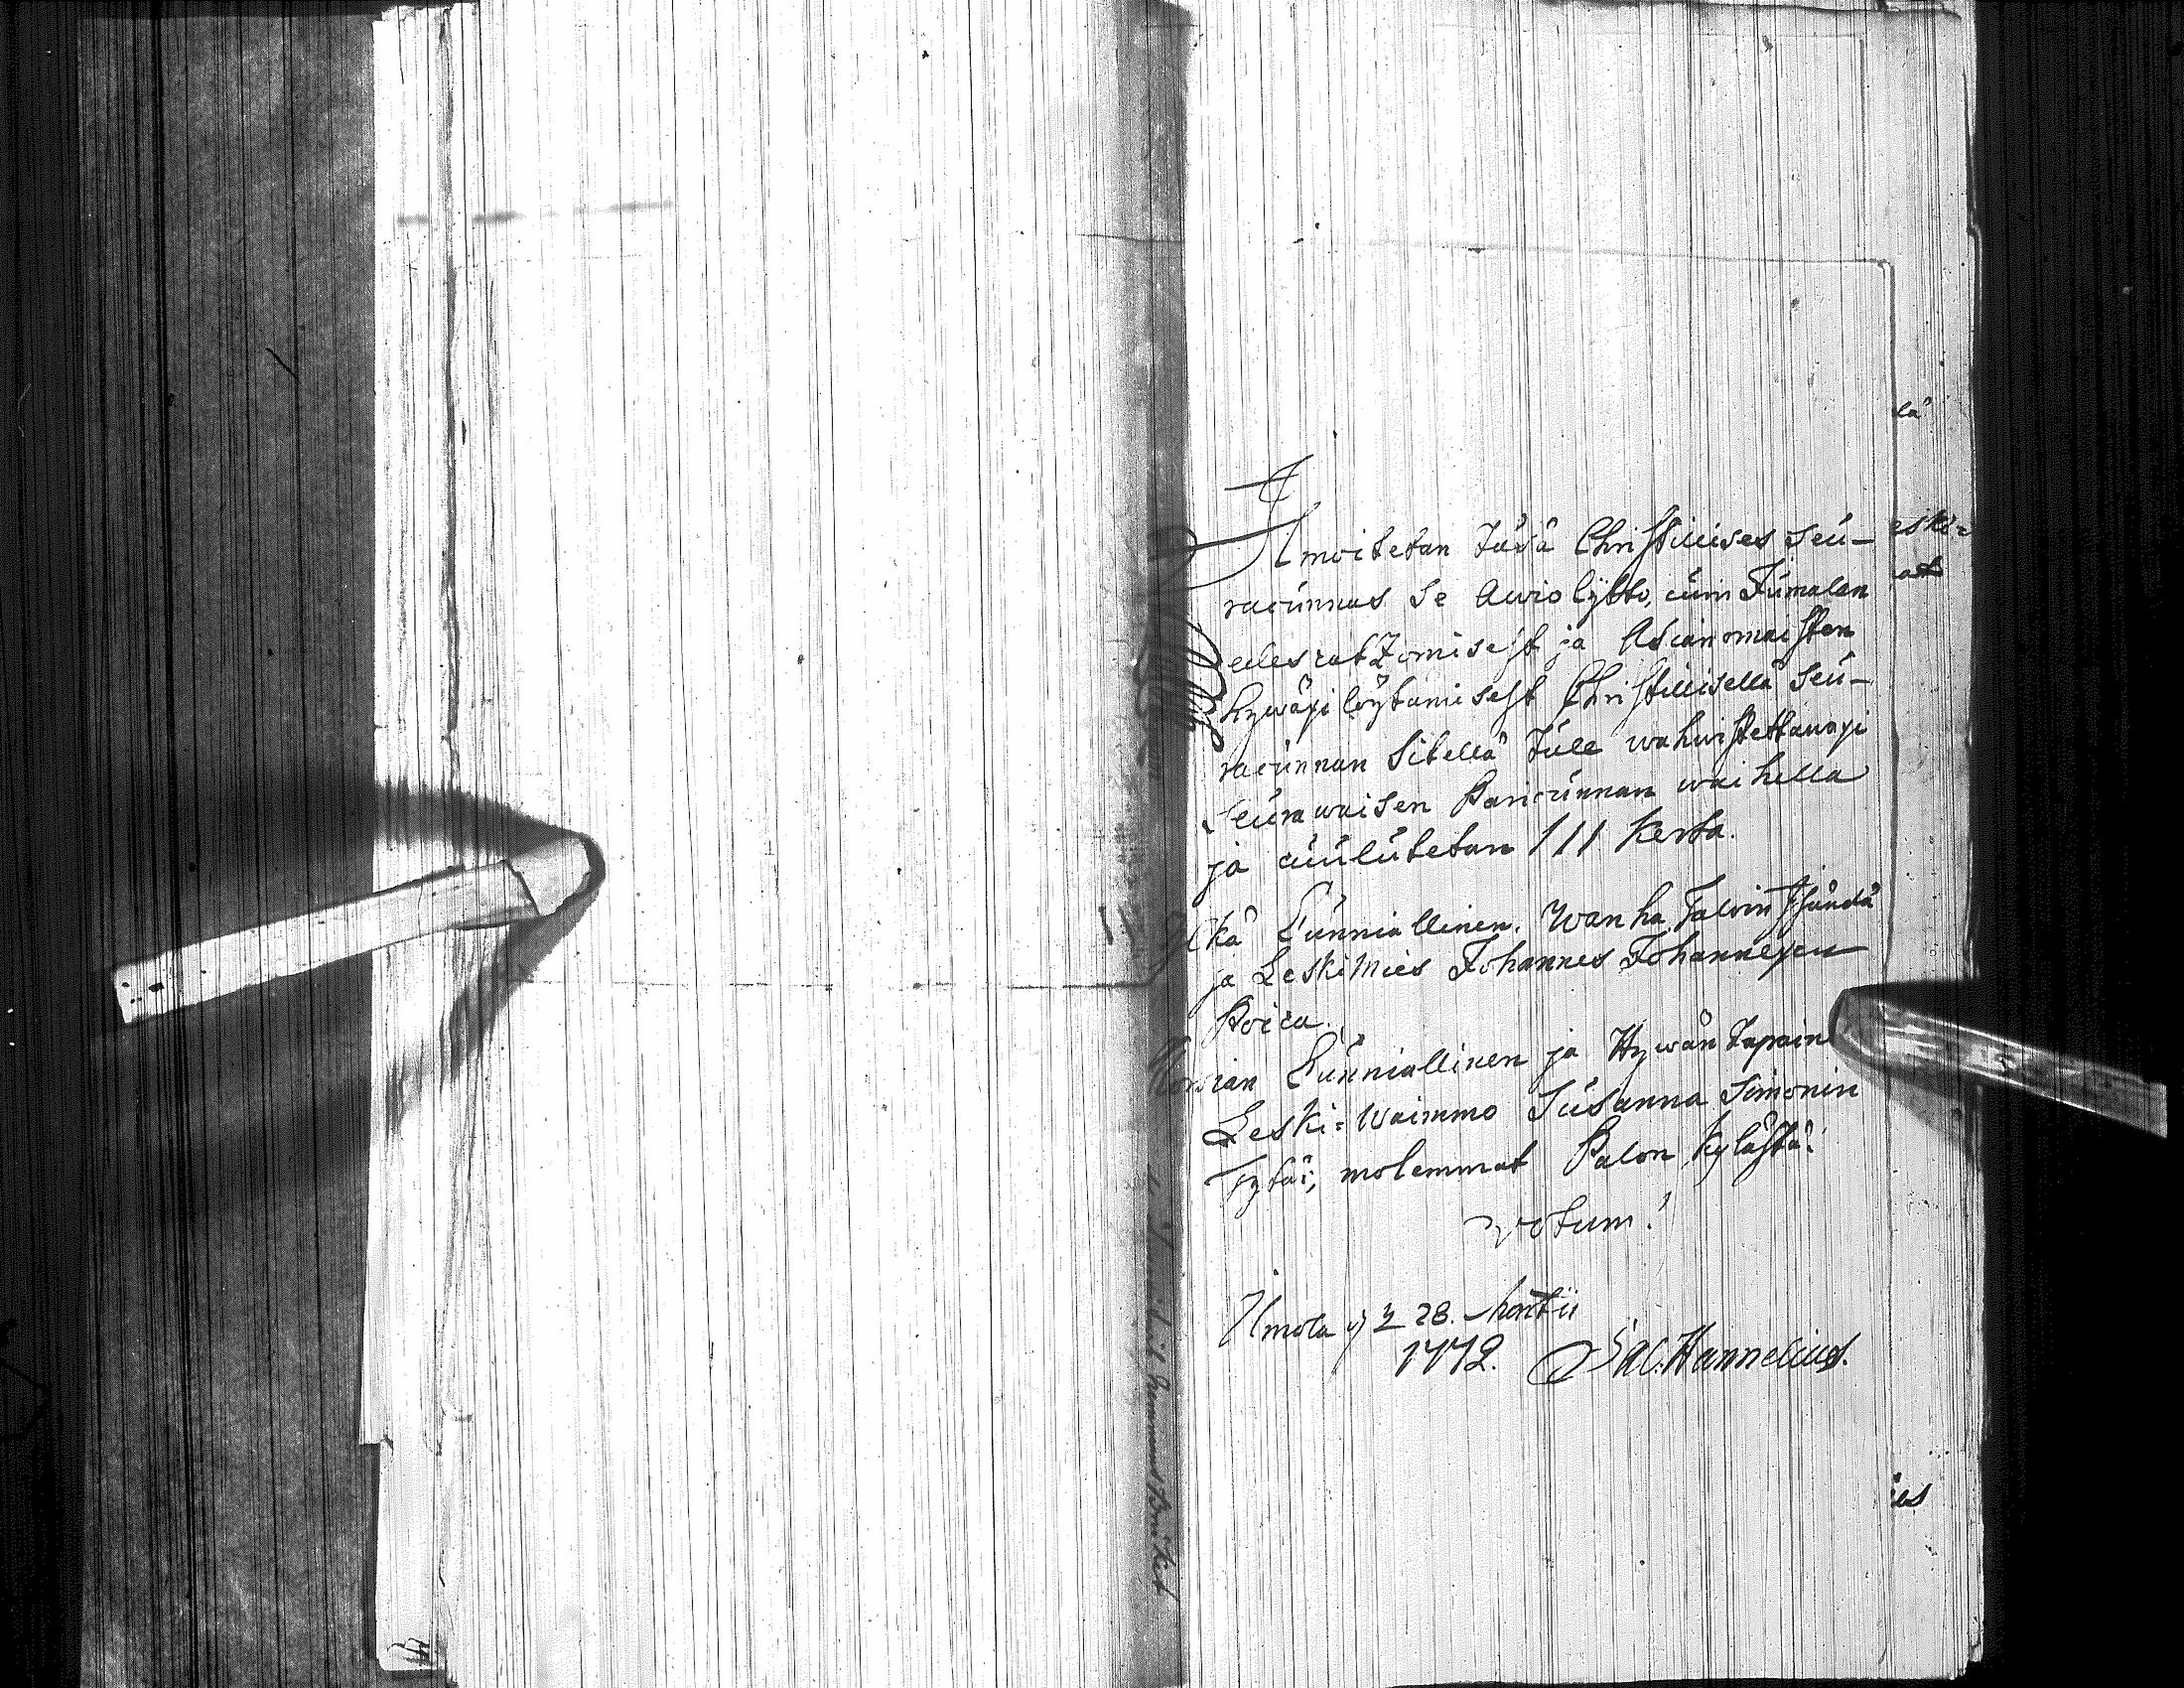 Ilmoitetan täsä Christillises Seu-
racunnas se Awio lijtto, cuin Jumalan
edescatzomisest ja Asianomaisten
hywäxi löytämisest Christillisellä Seu-
racunnan Sitellä tule wahwistettawaxi
seurawaisen Paricunnan waihella
ja cuulutetan III Kerta.
Ylkä Cunniallinen Wanha Talvin Isändä
ja LeskiMies Johannes Johannexen
Poica.
Morsian Cunniallinen ja Hywän tapain
Leski=Waimmo Susanna Simonin
Tytär; molemmat Palon kylästä.
votum!
Ilmola d 28. Martii
1772. Sac. Hannelius.